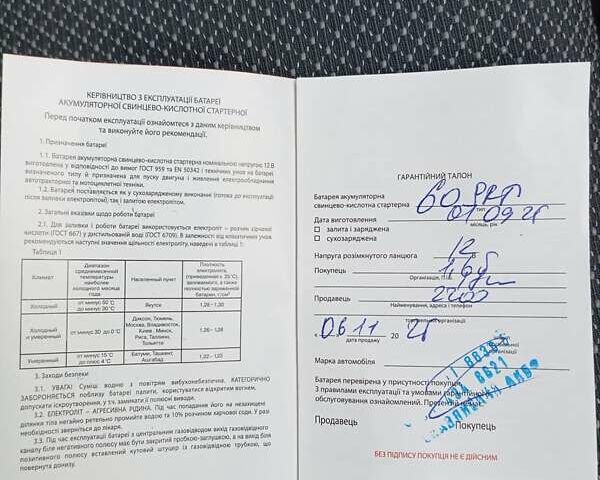 КЕРІВНИЦТВО З ЕКСПЛУАТАЦІЇ БАТАРЕЇ
АКУМУЛЯТОРНОЇ СВИНЦЕВО-КИСЛОТНОЇ СТАРТЕРНОЇ
Перед початком експлуатації ознайомтеся з даним керівництвом
та виконуйте його рекомендації.
1. Призначення батареї
1.1. Батарея акумуляторна свинцево-кислотна стартерна номінальною напругою 12 В
виготовлена у відповідності до вимог ГОСТ 959 та EN 50342 і технічних умов на батареї
визначеного типу й призначена для пуску двигуна і живлення електрообладнання
автотракторної та мотоциклетної техніки.
1.2. Батарея поставляється як у сухозарядженому виконанні (готова до експлуатації
після заливки електролітом), так і залитою електролітом.
2. Загальні вказівки щодо роботи батареї
2.1. Для заливки і роботи батареї використовується електроліт – розчин сірчаної
кислоти (ГОСТ 667) у дистильованій воді (ГОСТ 6709). В залежності від кліматичних умов
рекомендуються наступні значення щільності електроліту, наведені в таблиці 1:
Таблиця 1
Климат
Диапазон
среднемесячной
температуры
наиболее
холодного
месяца года
Населенный пункт
Плотность
электролита,
(приведенная к 25°С),
заливаемого, а также
полностью заряженной
батареи, г/см³
Холодный
от минус 50 °С
до минус 30 °С
Якутск
1,28 – 1,30
Холодный
и умеренный
от минус 30 до 0 °С
Диксон, Тюмень,
Москва, Владивосток,
Киев, Минск,
Рига, Таллинн,
Тольятти
1,26 – 1,28
Умеренный
от минус 15°С
до плюс 4°С
Батуми, Ташкент,
Ашгабад
3. Заходи безпеки
3.1. УВАГА! Суміш водню з повітрям вибухонебезпечна, КАТЕГОРИЧНО
ЗАБОРОНЯЄТЬСЯ поблизу батареї палити, користуватися відкритим вогнем,
допускати іскроутворення, у т.ч. замикати її полюсні виводи.
3.2. ЕЛЕКТРОЛІТ – АГРЕСИВНА РІДИНА. Під час попадання його на незахищені
ділянки тіла негайно ретельно промийте водою та 10% розчином харчової соди. У разі
необхідності зверніться до лікаря.
3.3. Під час експлуатації батареї з центральним газовідводом вихід газовідвідного
каналу біля негативного полюсу має бути закритий пробкою-заглушкою, а на вихід біля
позитивного полюсу вставлений кутовий штуцер із газовідвідною трубкою, що
повернута донизу.
ГАРАНТІЙНИЙ ТАЛОН
Батарея акумуляторна
свинцево-кислотна стартерна 60
тип
Дата виготовлення
місяць, рік
залита і заряджена
сухозаряджена
Напруга розімкнутого ланцюга 12
Покупець
Продавець
Найменування, адреса і телефон
06 11 20
дата продажу
Марка автомобіля
Батарея перевірена у присутності покупця.
З правилами експлуатації та умовами гарантійного
обслуговування ознайомлений.
Продавець Покупець
БЕЗ ПІДПИСУ ПОКУПЦЯ НЕ Є ДІЙСНИМ.